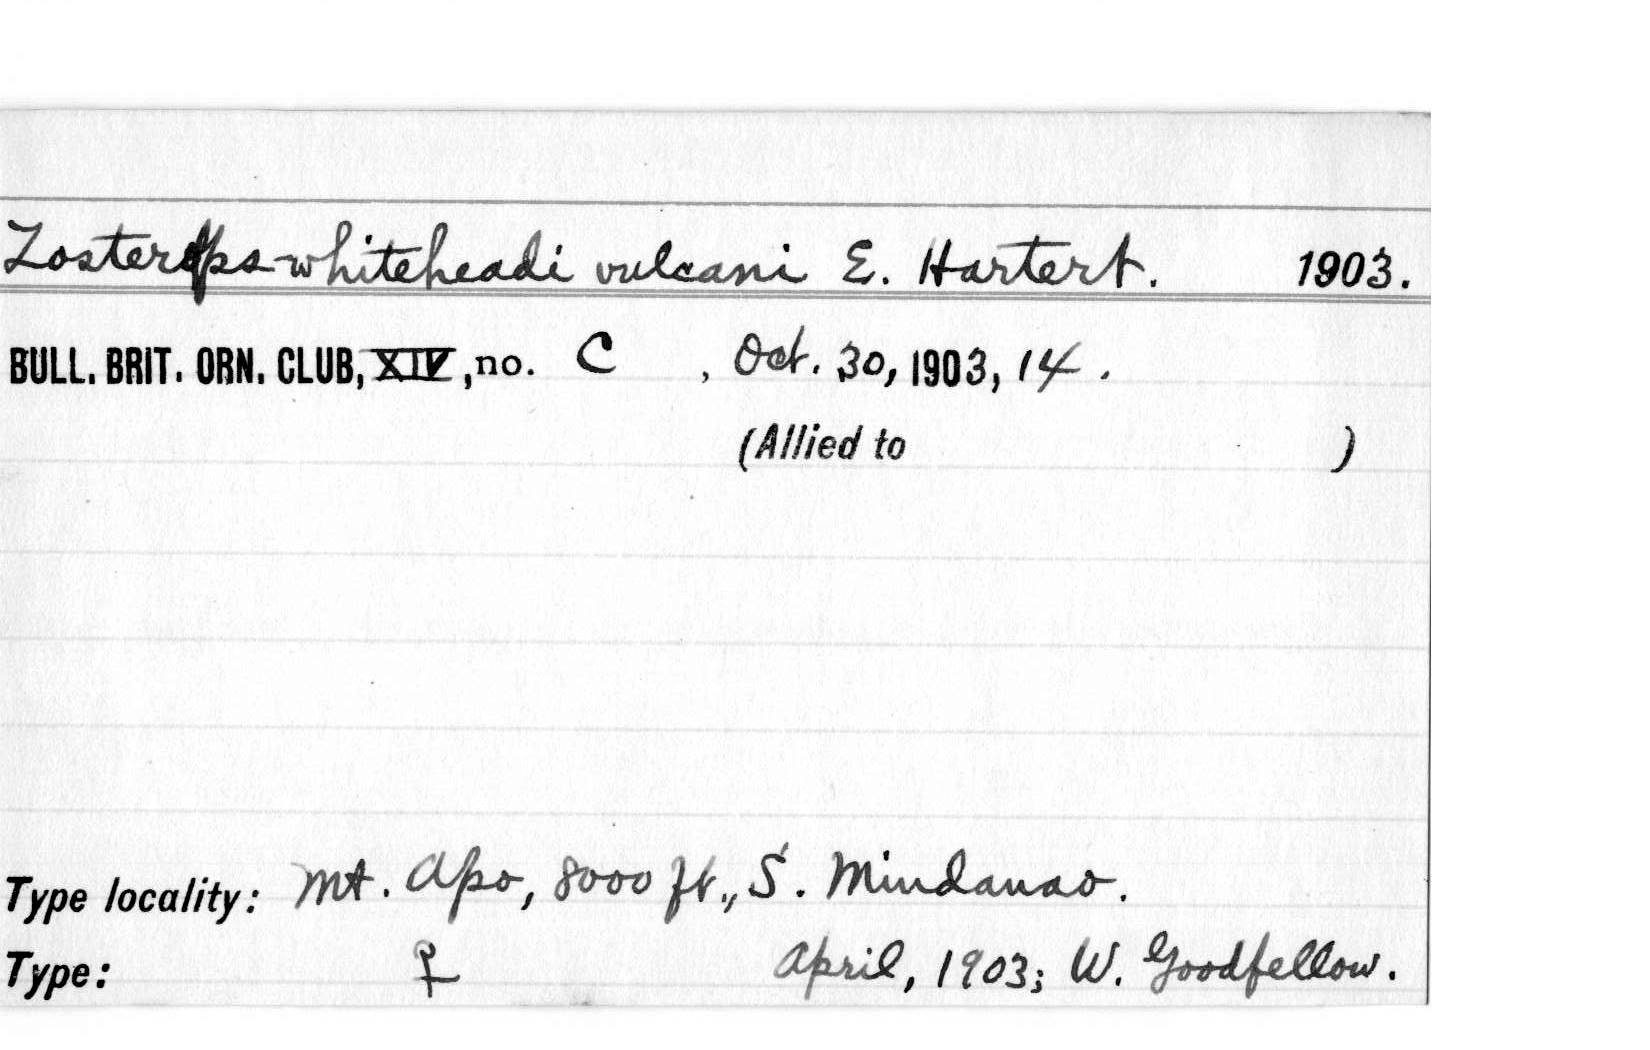 Zosterops whiteheadi vulcani E. Hartert. 1903.
BULL. BRIT. ORN. CLUB, XIV, no. C , Oct. 30, 1903, 14.
(Allied to )
Type locality: Mt. Apo, 8000 ft., S. Mindanao.
Type: ♀ April, 1903; W. Goodfellow.